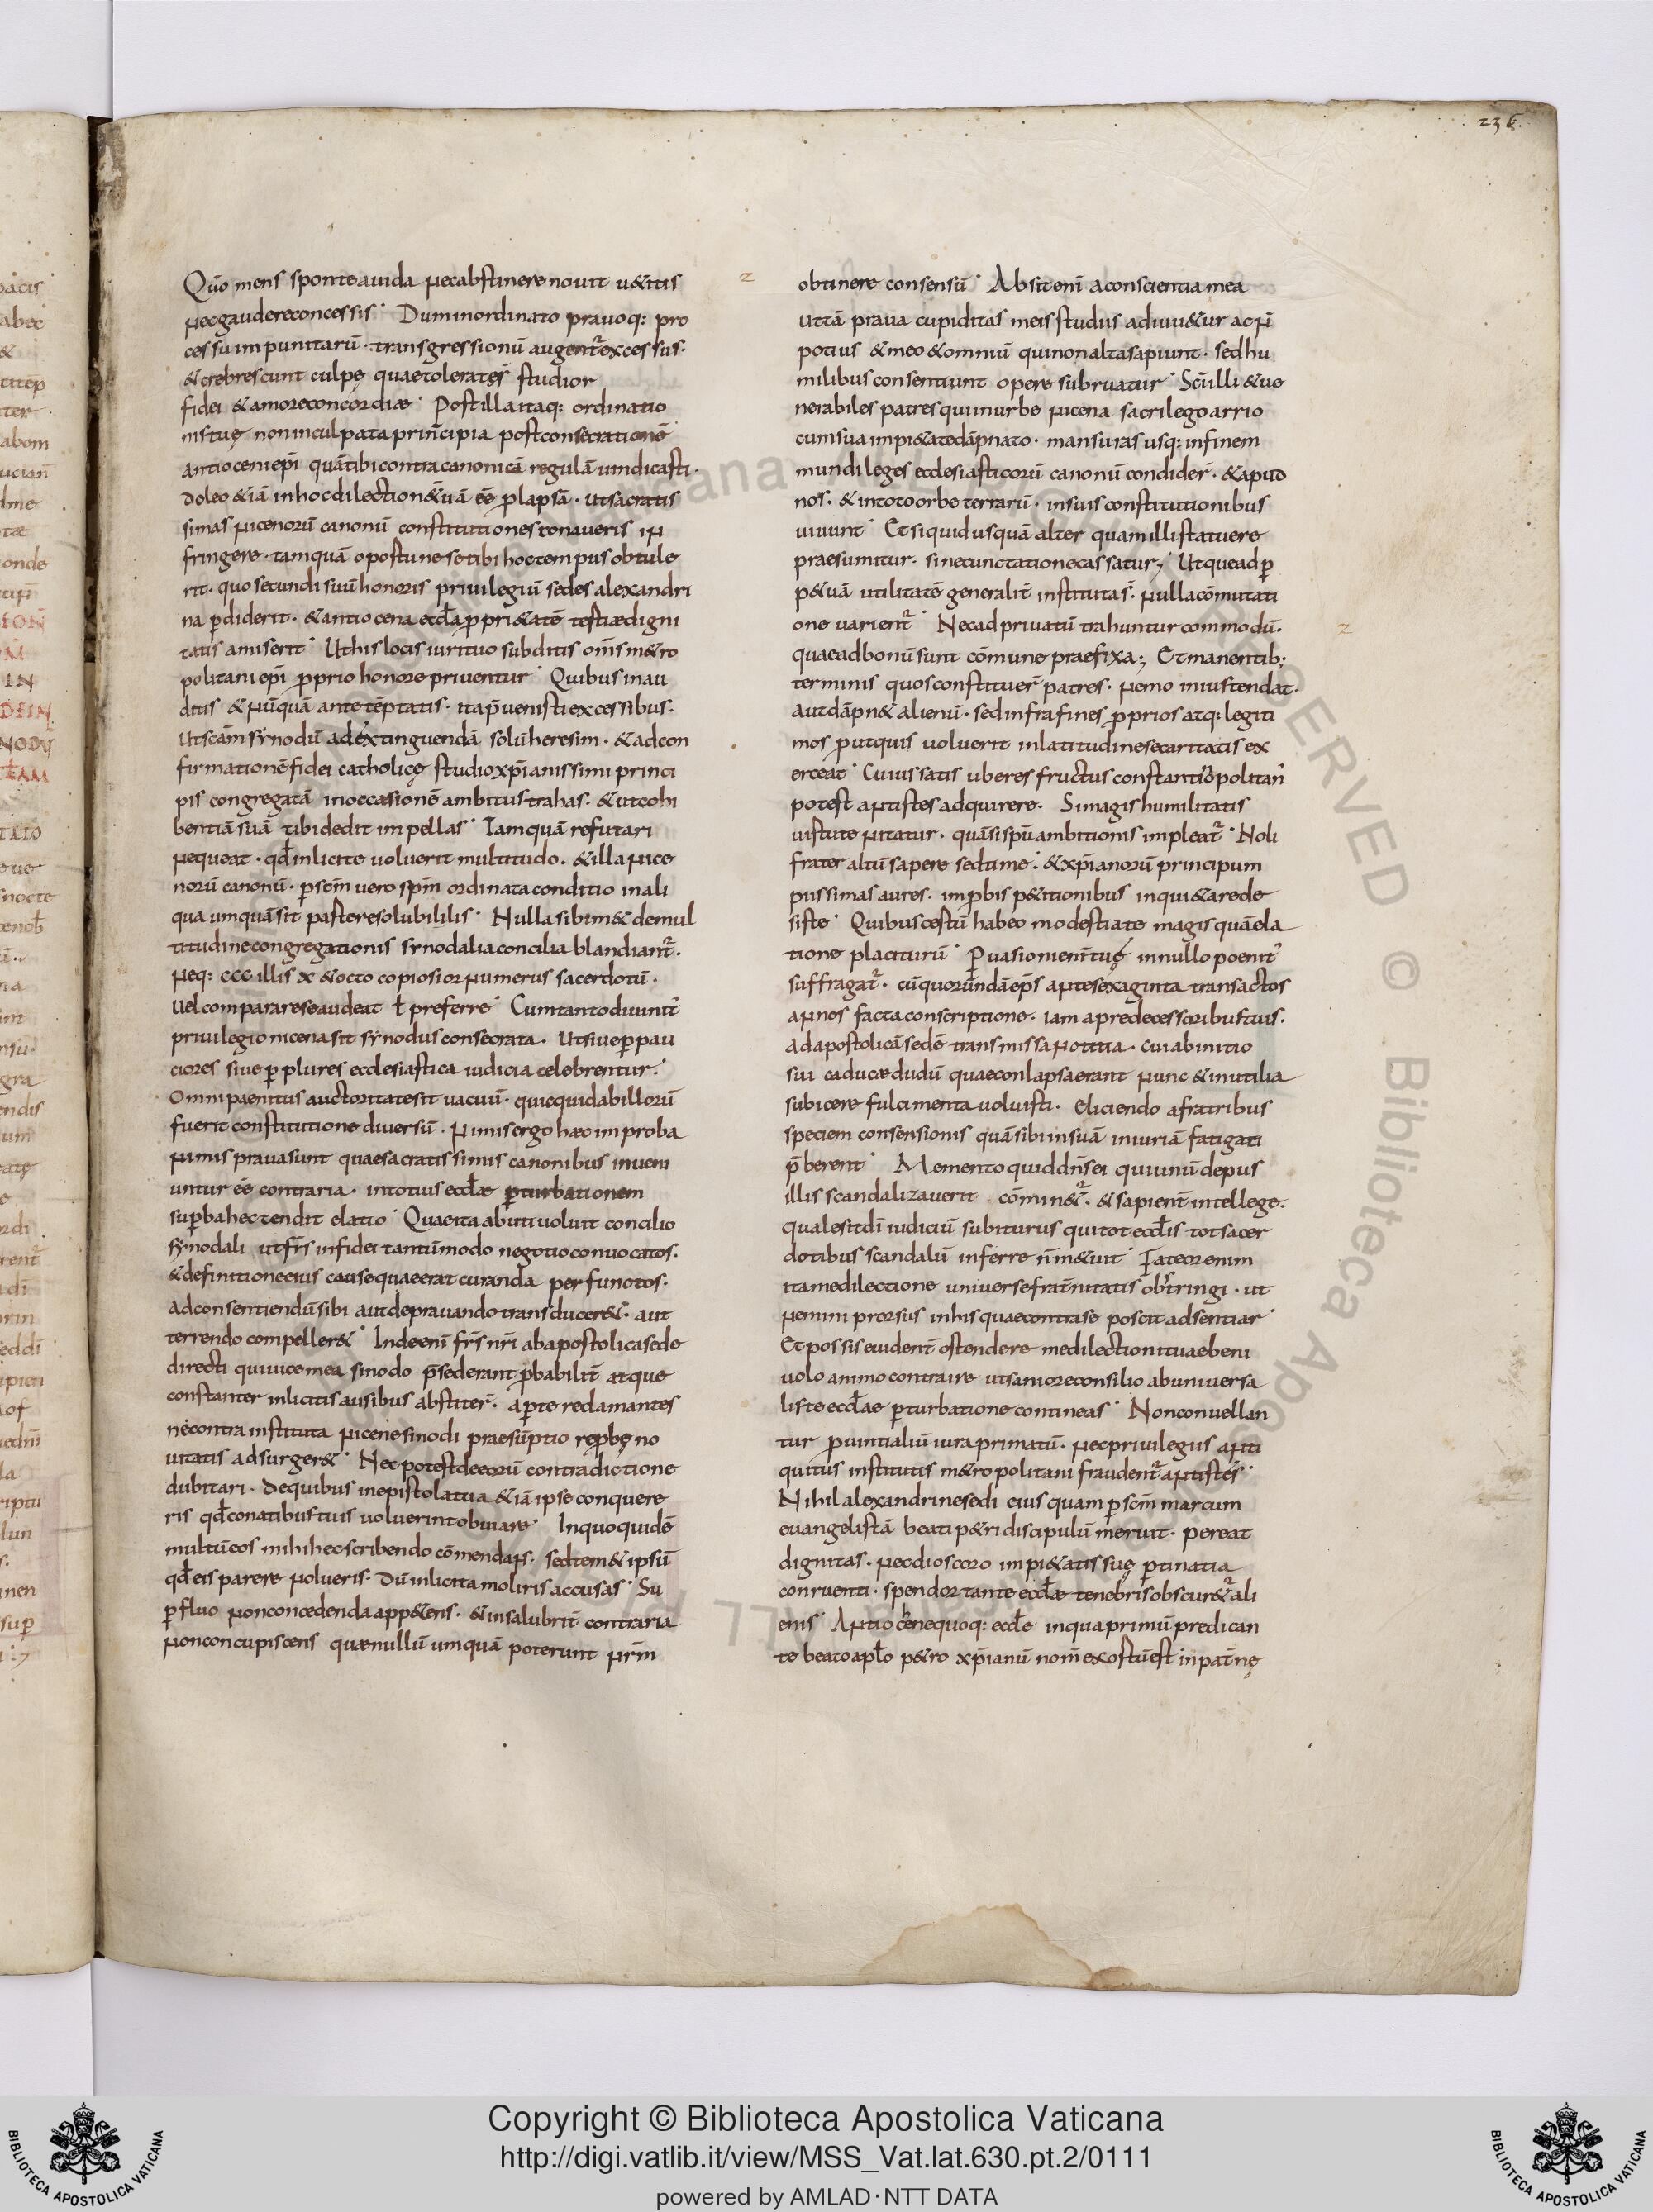 236
Quō mens sponte auida nec abstinere nouit u&itis
nec gaudere concessis. Dum inordinato prauoq: pro
cessu impunitarū. transgressionū augent᷑ excessus.
& crebrescunt culpę quae tolerateș studior
fidei & amore concordiæ. Post illa itaq: ordinatio
nis tuę non inculpata prin̄cipia post consecrationē
antioceni ep̄i quā tibi contra canonicā regulā uindicasti.
doleo & iā in hoc dilection&uā eē ꝓlapsā. ut sacratis
simas nicenorū canonū constitutiones conaueris in
fringere. tamquā opostune se tibi hoc tempus obtule
rit. quo secundi suū honoris priuilegiū sedes alexandri
na ꝑdiderit. & antiocena eccła ꝓpri&atē testiæ digni
tatis amiserit. Ut his locis iuri tuo subditis om̄s m&ro
politani ep̄i ꝓprio honore priuentur. Quibus inau
ditis & nūquā ante tēptatis. ita p̄uenisti excessibus.
ut scām synodū ad extinguendā solū heresim. & ad con
firmationē fidei catholicę studio xp̄ianissimi princi
pis congregatā in occasionē ambitus trahas. & ut cohi
bentiā suā tibi dedit impellas. Iamquā refutari
nequeat. qđ inlicite uoluerit multitudo. & illa nice
norū canonū. ꝑ scm̄ uero spm̄ ordinata conditio in ali
qua umquā sit paste resolubililis. Nulla sibim& de mul
titudine congregationis synodalia concilia blandiant᷑.
neq: ccc illis x & octo copiosior numerus sacerdotū.
uel comparare se audeat ł preferre. Cum tanto diuinit᷑
priuilegio nicena sit synodus consecrata. Ut siue ꝑ pau
ciores siue ꝑ plures ecclesiastica iudicia celebrentur.
Omni paenitus auctoritate sit uacuū. quicquid ab illorū
fuerit constitutione diuersū. Nimis ergo hæc improba
nimis praua sunt quae sacratissimis canonibus inueni
untur eē contraria. in totius eccłæ ꝑturbationem
suꝑba hec tendit elatio. Quae ita abuti uoluit concilio
synodali ut fr̄s in fidei tantūmodo negotio conuocatos.
& definitione eius cause quae erat curanda perfunctos.
ad consentiendū sibi aut deprauando transducer&. aut
terrendo compeller&. Inde eni fr̄s nr̄i ab apostolica sede
directi qui uice mea sinodo p̄sederant ꝓbabilit̄ atque
constanter inlicitis ausibus abstiter̄. aꝑte reclamantes
nē contra instituta nicene sinodi praesūptio reꝓbę no
uitatis adsurger&. Nec potest de eorū contradictione
dubitari. de quibus in epistola tua & iā ipse conquere
ris qđ conatibus tuis uoluerint obuiare. In quo quidē
multū eos mihi hec scribendo cōmendans. sed tem& ipsū
qđ eis parere nolueris. dū inlicita moliris accusas. Su
ꝑfluo non concedenda app&ens. & insalubrit̄ contraria
non concupiscens quæ nullū umquā poterunt nrm̄
obtinere consensū. Absit eni a conscientia mea
ut tā praua cupiditas meis studiis adiuu&ur ac n̄
potius & meo & omniū qui non alta sapiunt. sed hu
milibus consentiunt opere subruatur. Sc̄i illi & ue
nerabiles patres qui in urbe nicena sacrilego arrio
cum sua impi&ate dāpnato. mansuras usq: in finem
mundi leges ecclesiasticorū canonū condider̄. & apud
nos. & in toto orbe terrarū. in suis constitutionibus
uiuunt. Et si quid usquā alter quam illi statuere
praesumitur. sine cunctatione cassatur; Ut que ad ꝑ
p&uā utilitatē generalit̄ institutas̄. nulla cōmutati
one uarient᷑. Nec ad priuatū trahuntur commodū.
quae ad bonū sunt cōmune praefixa; Et manentib;
terminis quos constituer̄ patres. nemo in iustendat.
aut dāpn& alienū. sed infra fines ꝓprios atq: legiti
mos ꝓut quis uoluerit in latitudinese caritatis ex
erceat. Cuius satis uberes fructus constantinopolitan᷑
potest antistes adquirere. Si magis humilitatis
uistute nitatur. quā si spū ambitionis impleat᷑. Noli
frater altū sapere sed time. & xp̄ianorū principum
piissimas aures. imꝓbis p&itionibus inqui&are de
siste. Quibus cestū habeo modestia te magis quā ela
tione placiturū. P̱uasioni eni tuę in nullo poenit᷑
suffragat᷑. cū quorundā ep̄s ante sexaginta transactos
annos facta conscriptione. iam a predecessoribus tuis.
ad apostolicā sedē transmissa notitia. cui ab initio
sui caducæ dudū quae conlapsa erant nunc & inutilia
subicere fulcimenta uoluisti. eliciendo a fratribus
speciem consensionis quā sibi in suā iniuriā fatigati
p̄berent. Memento quid dn̄s ei qui unū de pus
illis scandalizauerit cōmin&᷑. & sapient̄ intellege.
quale sit dī iudiciū subiturus qui tot eccłis tot sacer
dotibus scandalū inferre n̄ m&uit. Fateor enim
ita me dilectione uniuerse frat̄nitatis obstringi. ut
nemini prorsus in his quae contra se poscit adsentiar.
Et possis euident̄ ostendere me dilectioni tuae beni
uolo animo contraire ut saniore consilio ab uniuersa
liste eccłae ꝑturbatione contineas. Non conuellan
tur ꝓuintialiū iura primatū. nec priuilegiis anti
quitus institutis m&ropolitani fraudent᷑ antistes.
Nihil alexandrine sedi eius quam ꝑ scm̄ marcum
euangelistā beati p&ri discipulū meruit. pereat
dignitas. nec dioscoro impi&atis suę ꝑtinatia
conruenti. spendor tante eccłæ tenebris obscur&᷑ ali
enis. Antiochene quoq: eccłe in qua primū predican
te beato apło p&ro xp̄ianū nom̄ exostū est in pat̄ne
Copyright © Biblioteca Apostolica Vaticana
http://digi.vatlib.it/view/MSS_Vat.lat.630.pt.2/0111
powered by AMLAD·NTT DATA